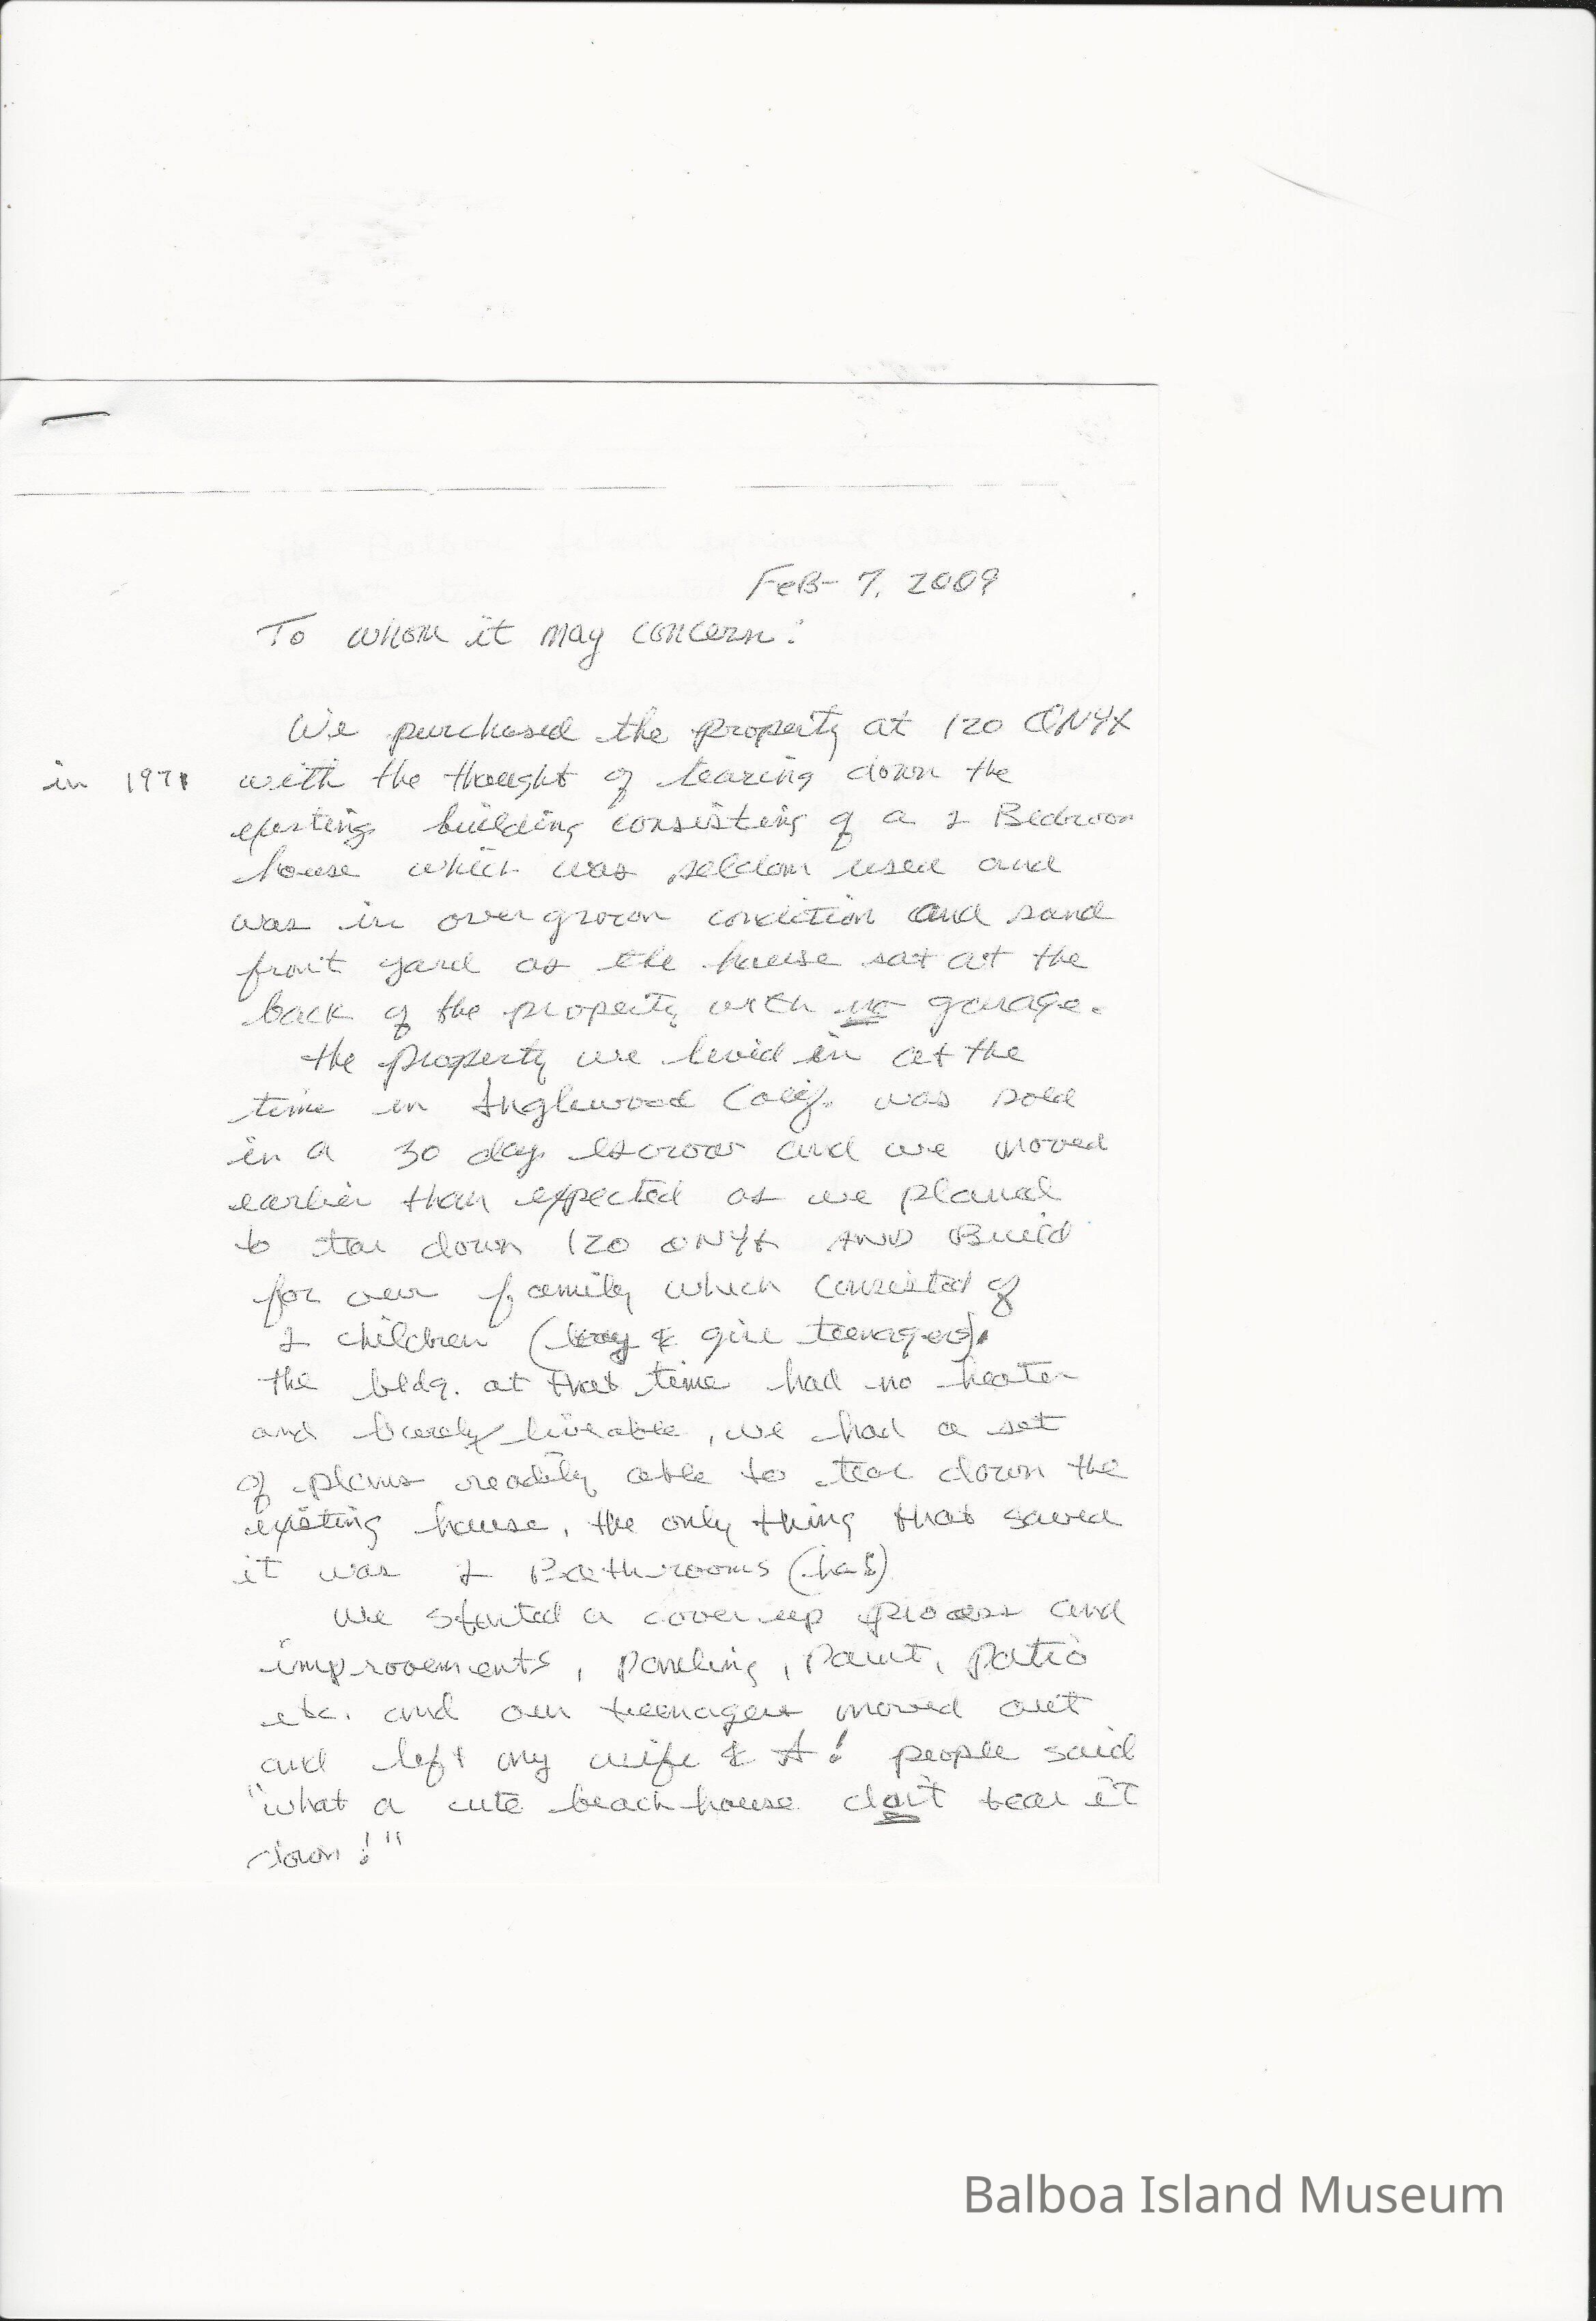 FeB- 7, 2009
To whom it may concern:
We purchased the property at 120 ONYX
in 1971 with the thought of tearing down the
existing building consisting of a 2 Bedroom
house which was seldom used and
was in overgrown condition and sand
front yard as the house sat at the
back of the property with no garage.
the property we livid in at the
time in Inglewood Calif. was sold
in a 30 day escrow and we moved
earlier than expected as we planed
to tear down 120 ONYX AND Build
for our family which consisted of
2 children (boy & girl teenagers).
the bldg. at that time had no heater
and barely liveable, we had a set
of plans readily able to tear down the
existing house, the only thing that saved
it was 2 Bathrooms (ha!)
We started a cover up process and
improvements, paneling, paint, patio
etc. and our teenagers moved out
and left my wife & I! people said
"what a cute beach house don't tear it
down!"
Balboa Island Museum